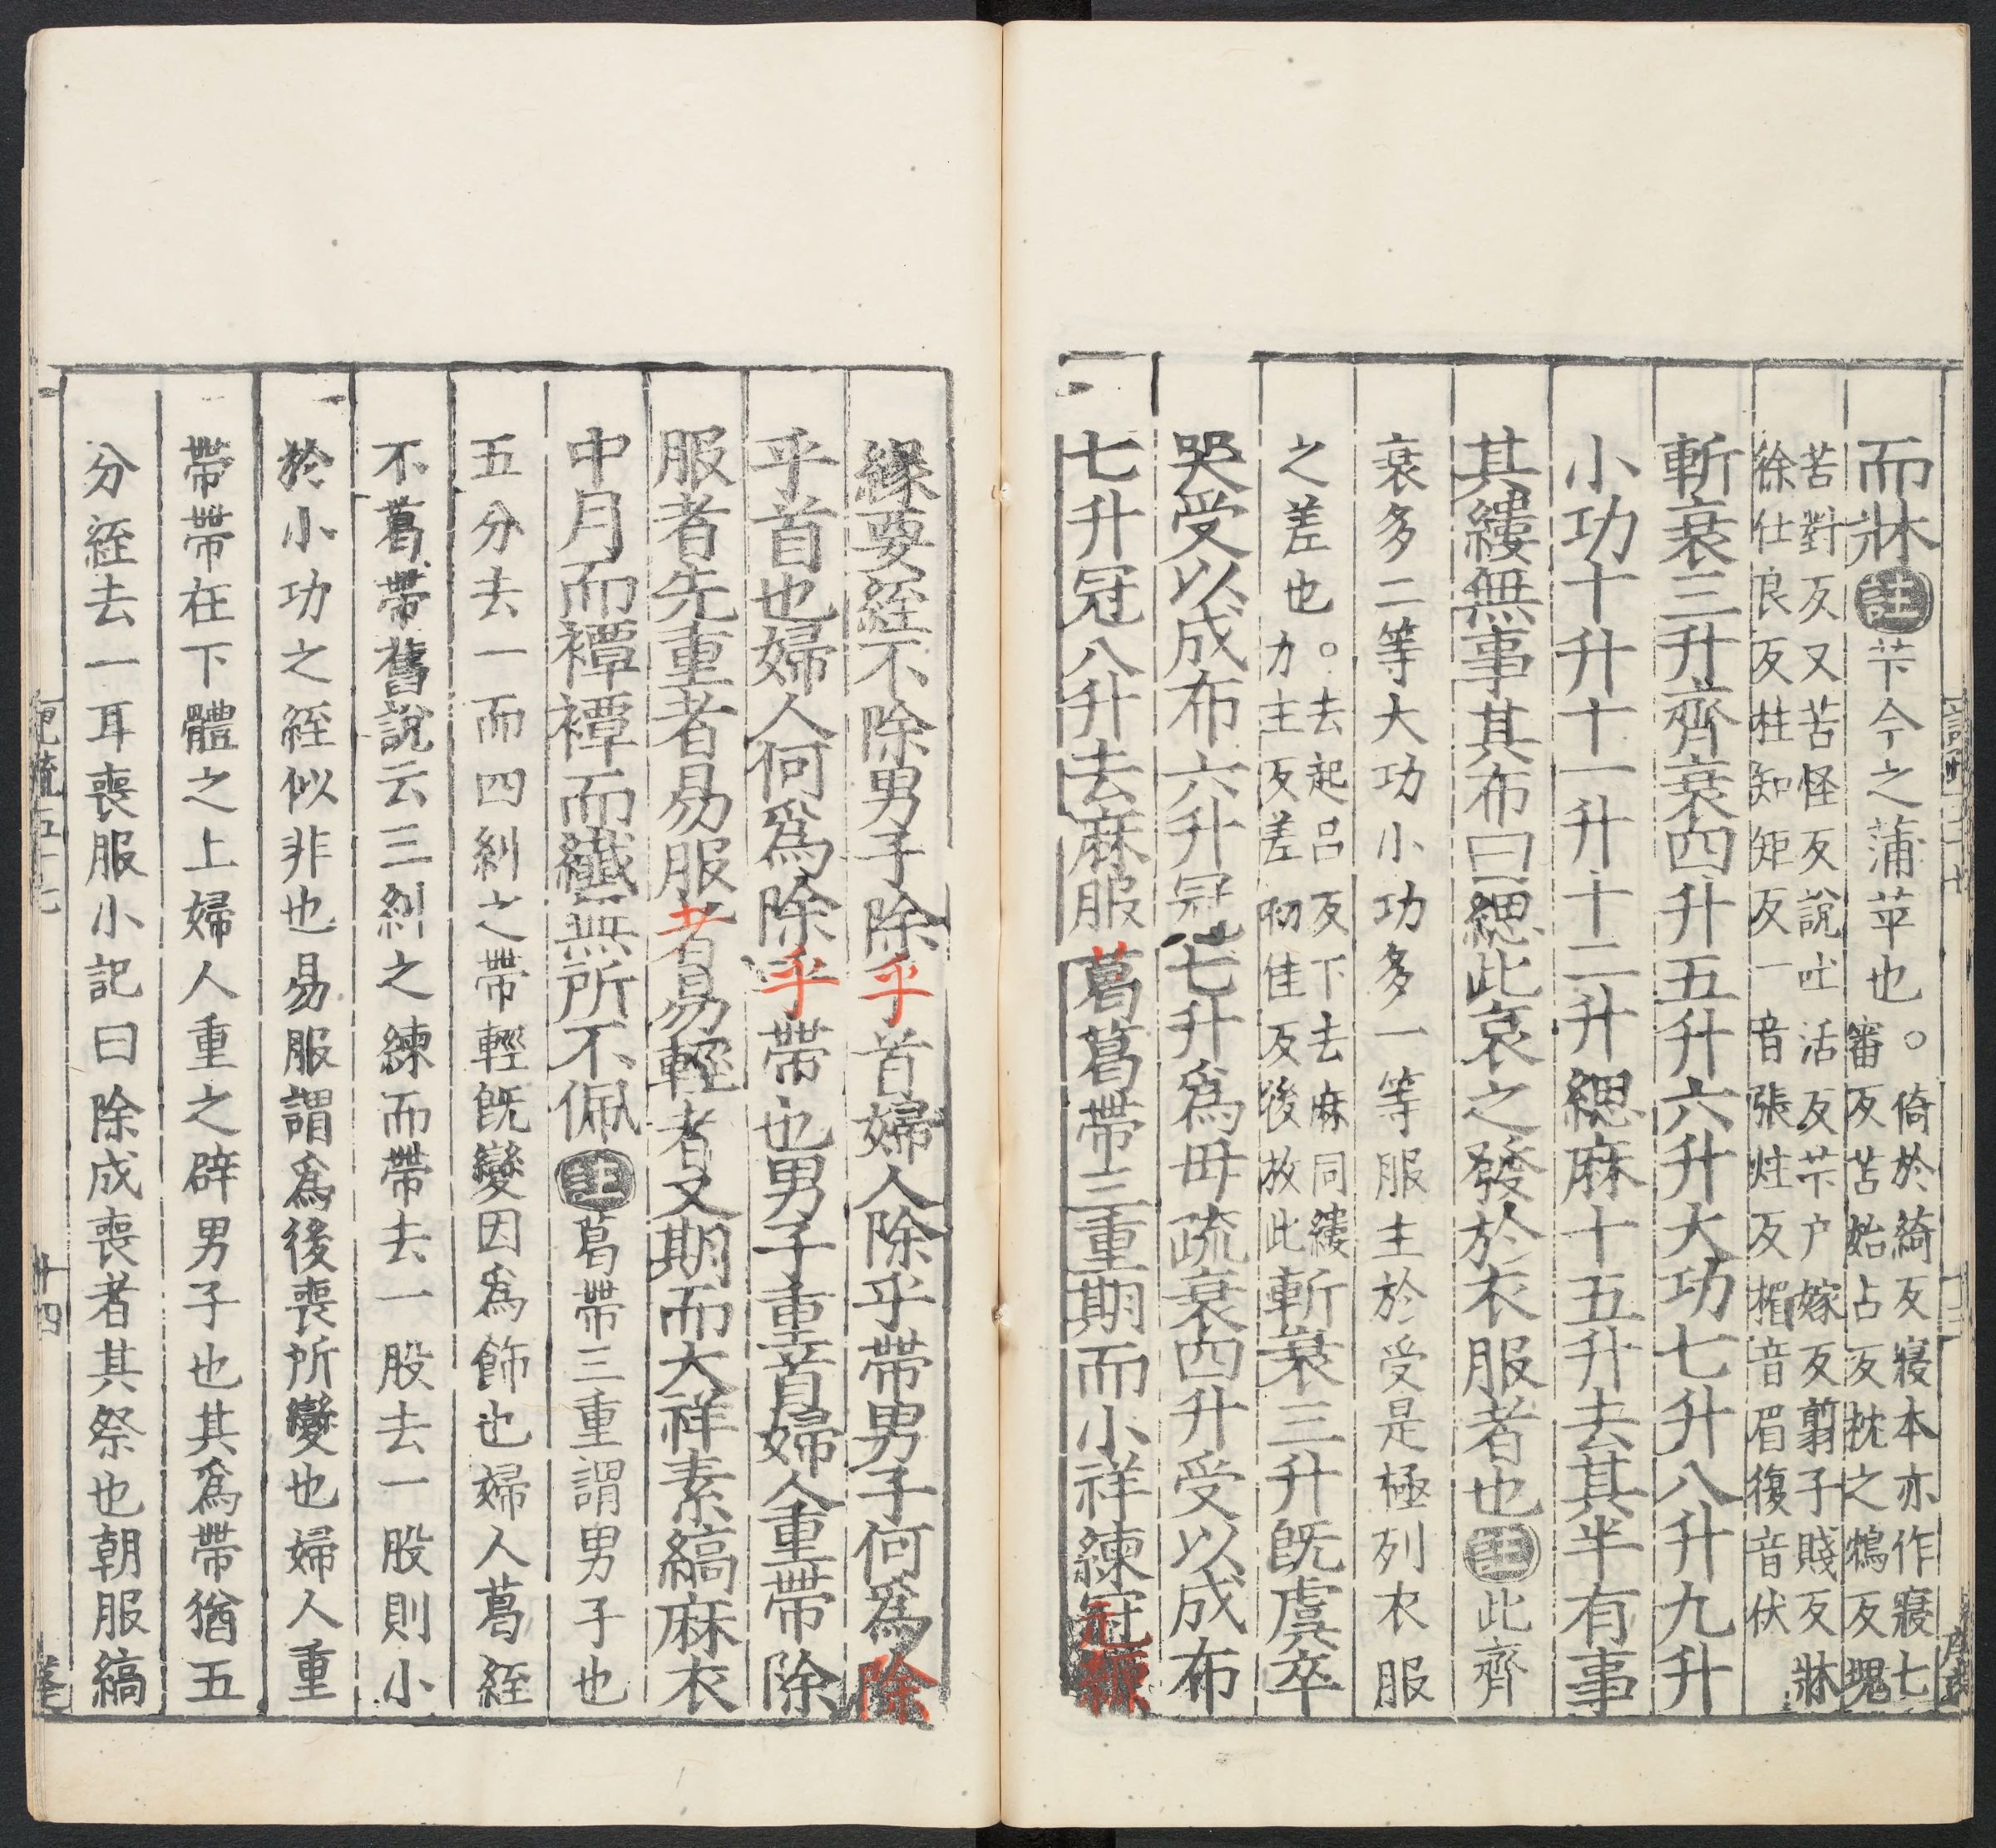 而牀註芐今之蒲苹也○倚於綺反寢本亦作寢七
審反苫始占反枕之鴆反塊
苦對反又苦怪反說吐活反芐户嫁反翦子賤反牀
徐仕良反柱知矩反一音張炷反楣音眉復音伏
斬衰三升齊衰四升五升六升大功七升八升九升
小功十升十一升十二升緦麻十五升去其半有事
其縷無事其布曰緦此哀之發於衣服者也註此齊
衰多二等大功小功多一等服主於受是極列衣服
之差也○去起呂反下去麻同縷
力主反差初佳反後放此斬衰三升旣虞卒
哭受以成布六升冠七升爲母疏衰四升受以成布
七升冠八升去麻服葛葛帶三重期而小祥練冠縓
緣要絰不除男子除乎首婦人除乎帶男子何爲除
乎首也婦人何爲除乎帶也男子重首婦人重帶除
服者先重者易服者易輕者又期而大祥素縞麻衣
中月而禫禫而纖無所不佩註葛帶三重謂男子也
五分去一而四糾之帶輕旣變因爲飾也婦人葛絰
不葛帶舊說云三糾之練而帶去一股去一股則小
於小功之絰似非也易服謂爲後喪所變也婦人重
帶帶在下體之上婦人重之辟男子也其爲帶猶五
分絰去一耳喪服小記曰除成喪者其祭也朝服縞